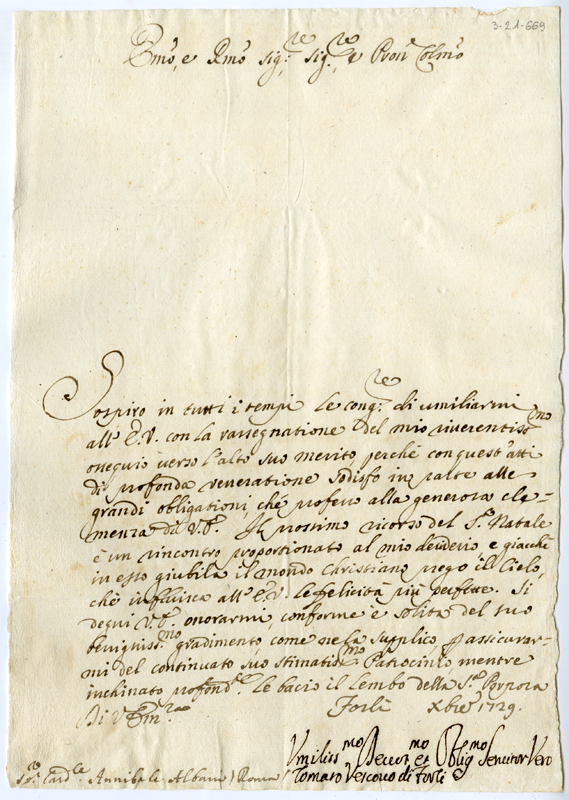 3-21-669
Emo, e Rmo Sig.re Sig.re e Pron Colmo
Sospiro in tutti i tempi le cong.re di umiliarmi
all' E.V. con la rassegnatione del mio riverentismo
ossequio verso l'alto suo merito perche conquest'atti
di profonda veneratione sodisfo in parte alle
grandi obligationi, che professo alla generosa cle-
menza di V.E. Il prossimo ricorso del S.o Natale
è un rincontro proportionato al mio desiderio, e giacche
in esso giubila il mondo Christiano prego il Cielo,
che influisca all' E.V. le felicità più perfette. Si
degni V.E. onorarmi, conforme è solita del suo
benigniss.mo gradimento, come ne la supplico, assicurar-
mi del continuato suo stimatismo Patrocinio, mentre
inchinato profond.te le bacio il lembo della S.a Porpora
Di V. Em.za Forlì Xbre 1729.
Umiliss.mo Devot.mo et Oblig.mo Servitor Vero
Tomaso Vescovo di Forlì
Sr. Card.le Annibale Albani (Roma)